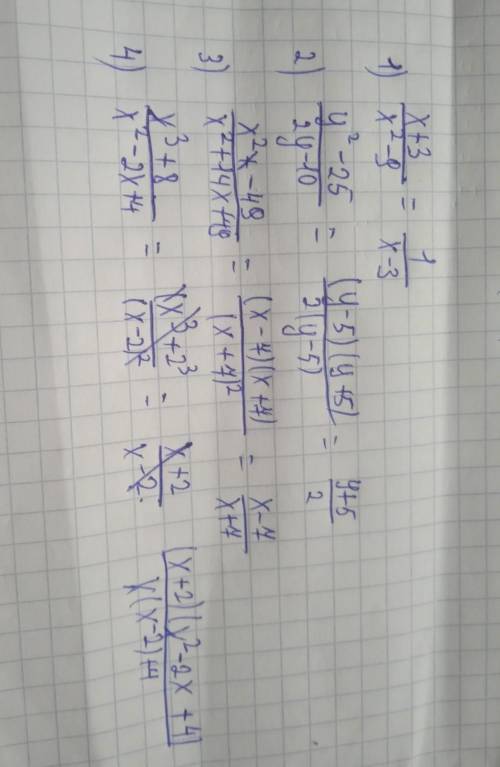 1) \frac{x+3}{x²-9} = \frac{1}{x-3}
2) \frac{y²-25}{2y-10} = \frac{(y-5)(y+5)}{2(y-5)} = \frac{y+5}{2}
3) \frac{x²-49}{x²+14x+49} = \frac{(x-7)(x+7)}{(x+7)²} = \frac{x-7}{x+7}
4) \frac{x³+8}{x²-2x+4} = \frac{(x³+2³}{(x-2)²} = \frac{x+2}{x-2} \frac{(x+2)(x²-2x+4)}{x(x-2)+4}